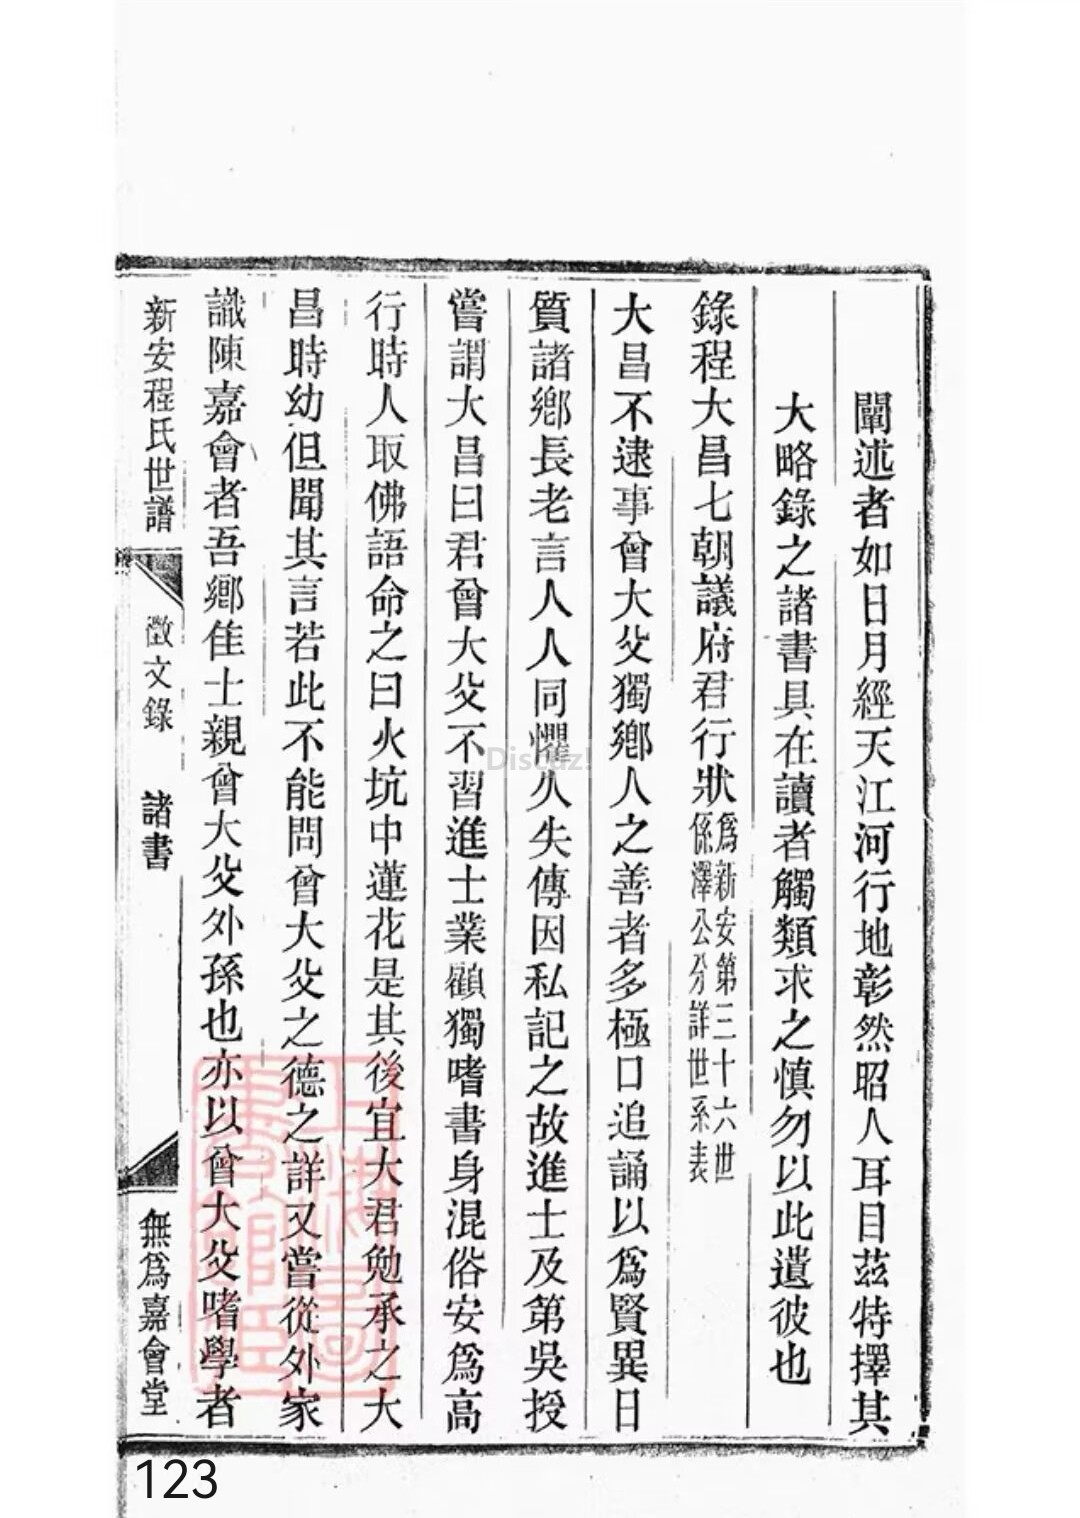 闡述者如日月經天江河行地彰然昭人耳目茲特擇其
大略錄之諸書具在讀者觸類求之慎勿以此遺彼也
錄程大昌七朝議府君行狀
爲新安第三十六世
係澤公分詳世系表
大昌不逮事曾大父獨鄉人之善者多極口追誦以爲賢異日
質諸鄉長老言人人同懼久失傳因私記之故進士及第吳授
嘗謂大昌曰君曾大父不習進士業顧獨嗜書身混俗安爲高
行時人取佛語命之曰火坑中蓮花是其後宜大君勉承之大
昌時幼但聞其言若此不能問曾大父之德之詳又嘗從外家
識陳嘉會者吾鄉佳士親曾大父外孫也亦以曾大父嗜學者
新安程氏世譜
徵文錄 諸書
無爲嘉會堂
上海圖書館藏
Discuz!
123